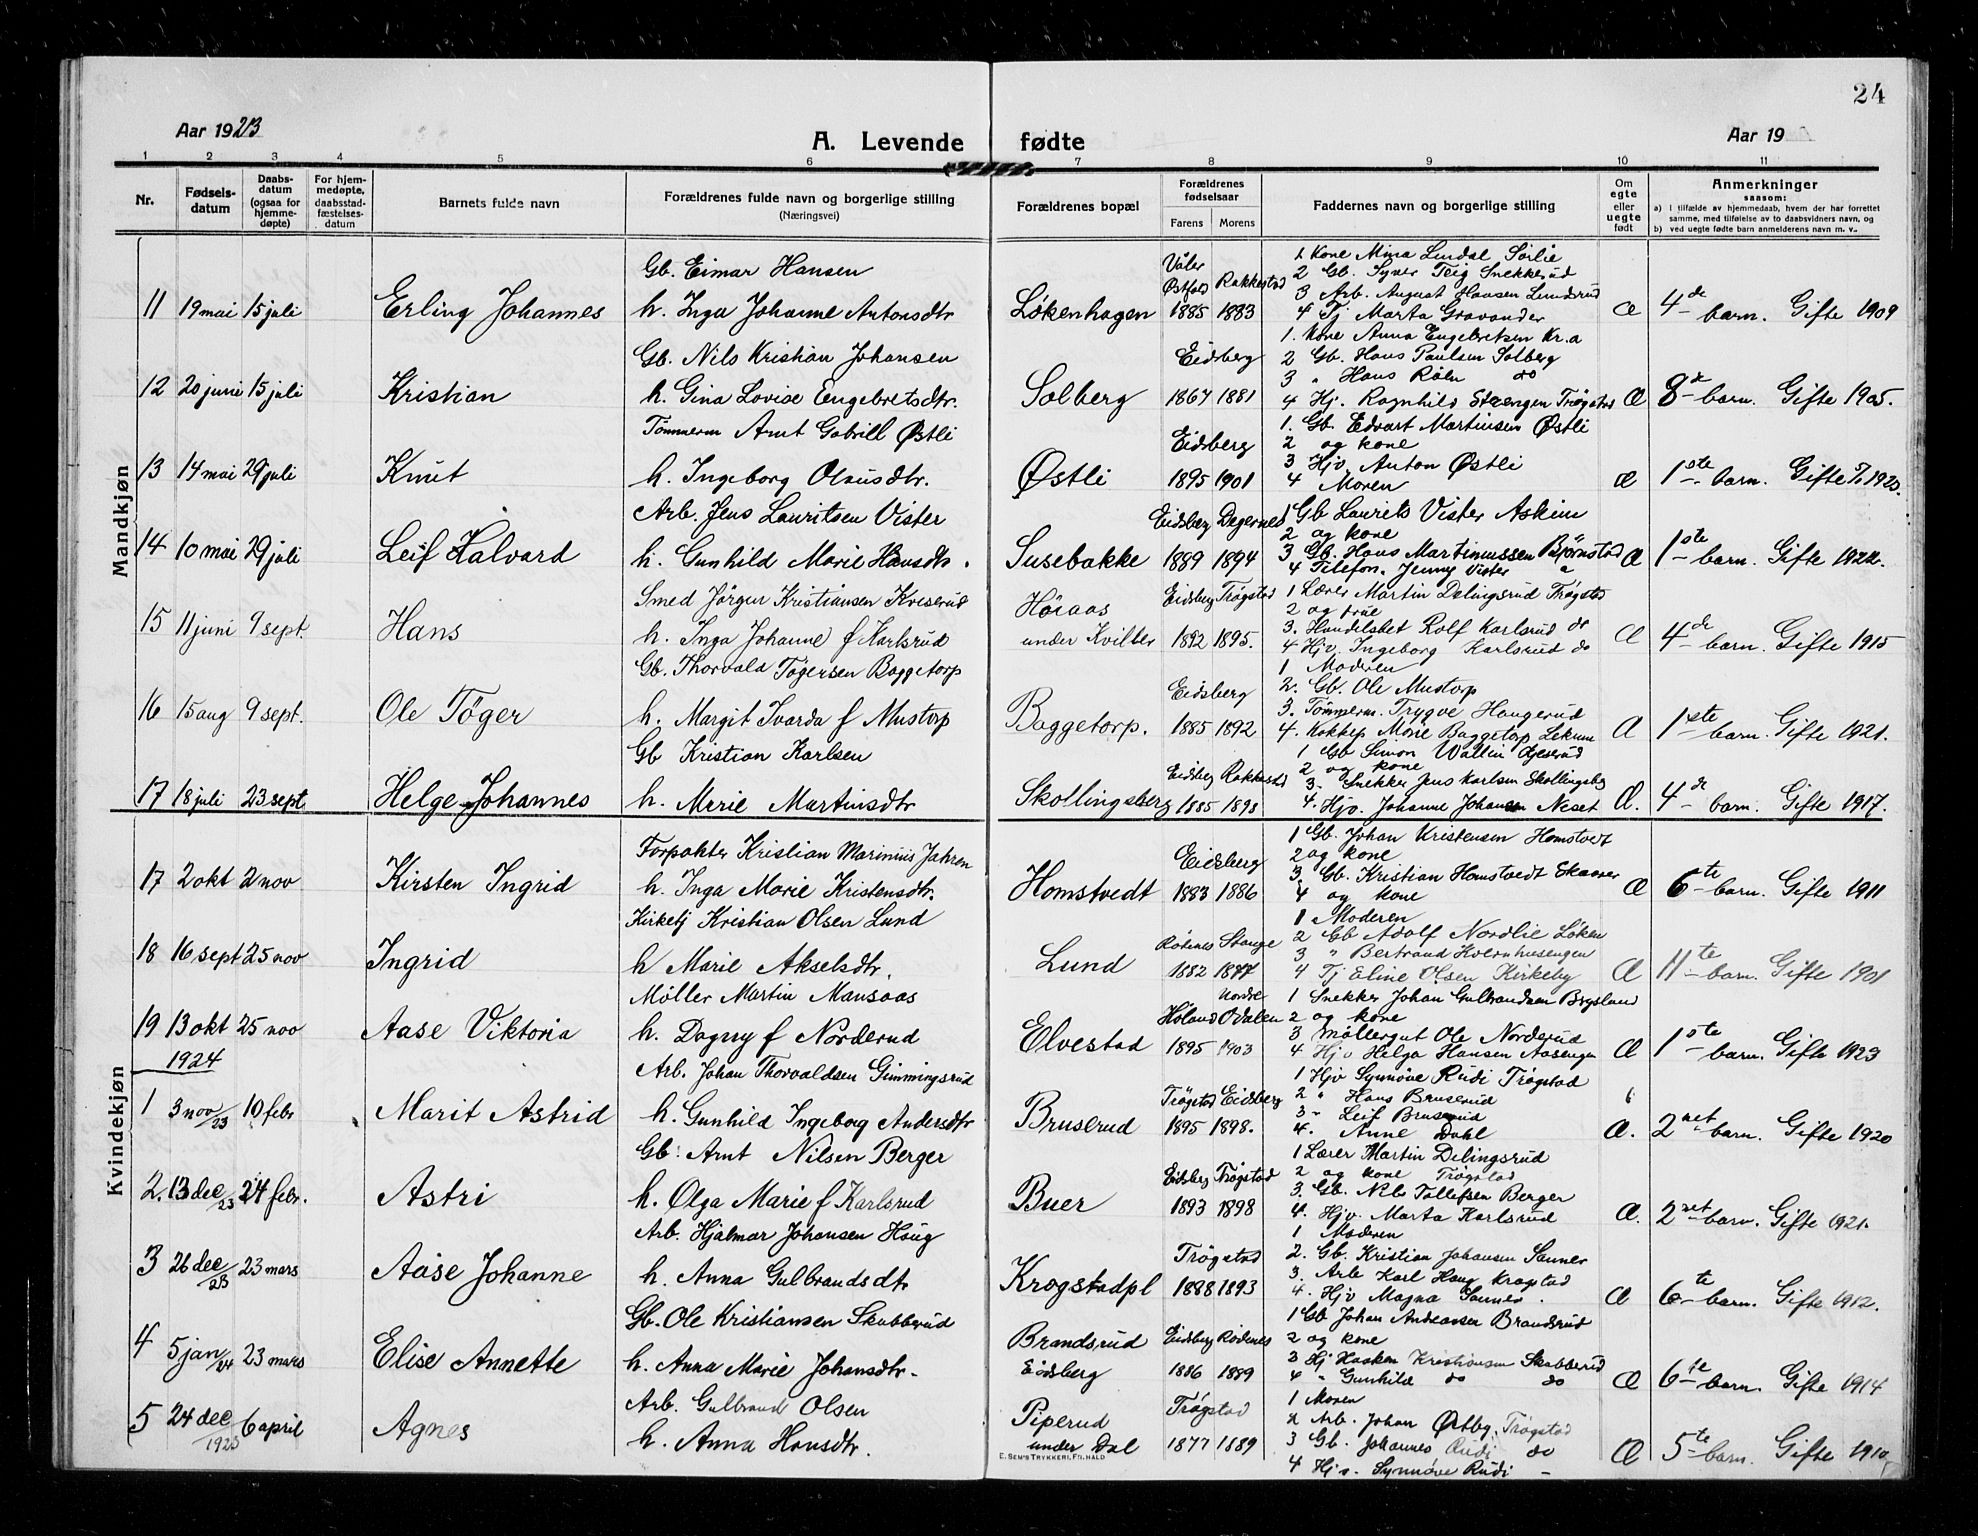 24
Aar 1923
A. Levende fødte
Aar 19
1 2 3 4 5 6 7 8 9 10 11
Nr.
Fødsels-datum
Daabs-datum (ogsaa for hjemme-døpte)
For hjem-medøpte, daabsstad-fæstelses-datum
Barnets fulde navn
Forældrenes fulde navn og borgerlige stilling (Næringsvei)
Forældrenes bopæl
Forældrenes fødselsaar
Farens Morens
Faddernes navn og borgerlige stilling
Om egte eller uegte født
Anmerkninger
saasom:
a) i tilfælde av hjemmedaab, hvem der har forrettet samme, med tilføielse av to daabsvidners navn, og
b) ved uegte fødte barn anmelderens navn m. v..
Mandkjøn
Gb. Eimar Hansen
11 19 mai 15 juli Erling Johannes h. Inga Johanne Antonsdtr
Løkenhagen
Våler Østfold Rakkestad
1885 1883
1. Kone Mina Lindal Sørlie
2 Gb. Syver Teig Snekkerud
3 Arb. August Hansen Lundsrud
4 Tj Marta Gravander
Æ 4de barn. Gifte 1909
Gb. Nils Kristian Johansen
12 20 juni 15 juli Kristian h. Gina Lovise Engebretsdtr.
Solberg
Eidsberg
1867 1881
1. Kone Anna Engebretsen Kr.a
2 Gb. Hans Paulsen Solberg
3 " Hans Røln do
4 Hj. Ragnhild Strengen Trøgstad
Æ 8de barn. Gifte 1905.
Tømmerm Arnt Gabriel Østli
13 14 mai 29 juli Knut h. Ingeborg Olausdtr.
Østli
Eidsberg
1895 1901
1. Gb. Edvart Martinsen Østli
2 og kone
3 Hjv. Anton Østli
4 Moren
æ 1ste barn. Gifte 1920.
Arb. Jens Lauritsen Vister
14 10 mai 29 juli Leif Halvard h. Gunhild Marie Hansdtr.
Susebakke
Eidsberg Degernes
1889 1894
1 Gb Laurits Vister Askim
2 og kone
3 Gb. Hans Martinussen Bjørnstad
4 Telefon. Jenny Vister
Æ 1ste barn. Gifte 1922.
Smed Jørgen Kristiansen Kviserud
15 11 juni 9 sept. Hans h. Inga Johanne f Karlsrud
Høiaas
under Kvilter
Eidsberg Trøgstad
1892 1895.
1 Lærer Martin Delingsrud Trøgstad
2 og frue
3. Handelsbet Rolf Karlsrud do
4 Hjv. Ingeborg Karlsrud do
Æ 4de barn. Gifte 1915
Gb. Thorvald Tøgersen Baggetorp
16 15 aug 9 sept. Ole Tøger h. Margit Ivarda f Mustorp
Baggetorp.
Eidsberg
1885 1892
1 Moderen
2. Gb. Ole Mustorp
3. Tømmerm. Trygve Haugerud
4. Kokkep Marie Baggetorp Lekum
Æ 1ste barn. Gifte 1921.
Gb Kristian Karlsen
17 18 juli 23 sept Helge Johannes h. Marie Martinsdtr
Skollingsberg
Eidsberg Rakkestad
1885 1898
1 Gb Simon Wallin
2 og kone
3. Snekker Jens Karlsen Skollingsbg
4. Hjv. Johanne Johansen Neset
Æ. 4de barn. Gifte 1917.
Kvindekjøn
Forpakter Kristian Marinius Jahren
17 2 okt 2 nov Kirsten Ingrid h. Inga Marie Kristensdtr.
Homstvedt
Eidsberg
1883 1886
1 Gb. Johan Kristensen Homstvedt
2 og kone
3. Gb. Kristian Homstvedt Skaarer
4 og kone
Æ 6te barn. Gifte 1911
Kirketj Kristian Olsen Lund
18 16 sept 25 nov Ingrid h Marie Akselsdtr.
Lund
Rødenes Stange
1882 1877
1 Moderen
2 Gb Adolf Nordlie Løken
3 " Bertrand Kvernhusengen
4 Tj Eline Olsen Kirkeby
Æ 11te barn. Gifte 1901
Møller Martin Mansaas
19 13 okt 25 nov Aase Viktoria h. Dagny f Norderud
Elvestad
Høland Nordre Odalen
1895 1903
1 Snekker Johan Gulbrandsen
2 og kone
3 møllergut Ole Norderud
4 Hjv Helga Hansen Aasengen
Æ 1ste barn. Gifte 1923
1924
Arb. Johan Thorvaldsen Gimmingsrud
1 3 nov/23 10 febr Marit Astrid h. Gunhild Ingeborg Andersdtr
Bruserud
Trøgstad Eidsberg
1895 1898.
1 Hjv Synnøve Rudi Trøgstad
2 " Hans Bruserud
3 " Leif Bruserud
4. Anne Dahl
Æ. 2net barn. Gifte 1920
Gb. Arnt Nilsen Berger
2. 13 dec/23 24 febr. Astri h. Olga Marie f Karlsrud
Buer
Eidsberg Trøgstad
1893 1898
1 Lærer Martin Delingsrud
2 og kone Trøgstad
3. Gb. Nils Tollefsen Berger
4. Hjv. Marta Karlsrud
Æ. 2net barn. Gifte 1921.
Arb. Hjalmar Johansen Haug
3 26 dec/23 23 mars Aase Johanne h. Anna Gulbrandsdtr
Krogstadpl
Trøgstad
1888 1893
1 Moderen
2. Gb. Kristian Johansen Sanner
3. Arb Karl Haug Krogstad
4. Hjv Magna Sanner.
Æ 6te barn. Gifte 1912.
Gb. Ole Kristiansen Skubberud
4 5 jan/24 23 mars Elise Annette h. Anna Marie Johansdtr.
Brandsrud
Eidsberg
Eidsberg Rødenes
1886 1889
1 Gb Johan Andersen Brandsrud
2 og kone
3 Hj Haaken Kristiansen Skubberud
4 " Gunhild do do
Æ 6te barn. Gifte 1914
Arb. Gulbrand Olsen
5 24 dec/1923 6 april Agnes h. Anna Hansdtr.
Piperud
under Dal
Trøgstad
1877 1889
1 Moren
2 Arb. Johan Østby, Trøgstad
3 Gb. Johannes Rudi do
4 Hjv. Synnøve Rudi -
Æ 5te barn. Gifte 1910
E. SEM'S TRYKKERI, FR.HALD